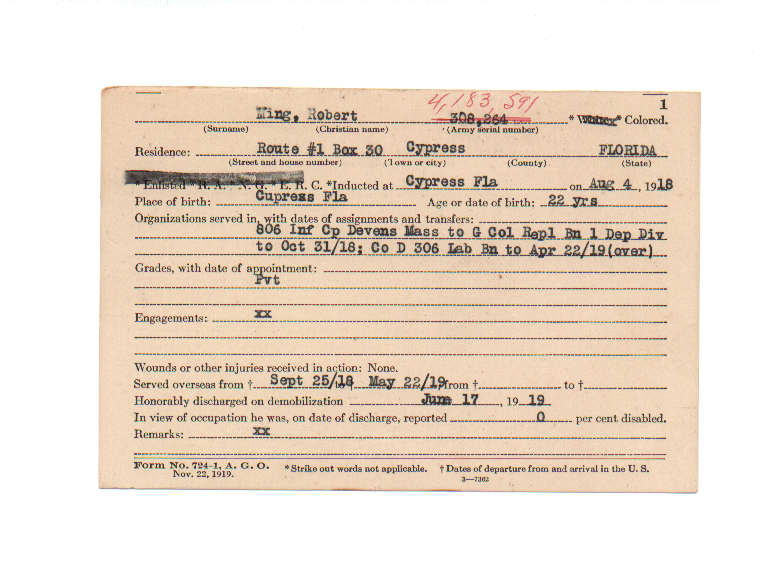 4,183,591
1
Ming, Robert 308,264 * White* Colored.
(Surname) (Christian name) (Army serial number)
Residence: Route #1 Box 30 Cypress FLORIDA
(Street and house number) (Town or city) (County) (State)
*Enlisted *R. A. *N. G. *E. R. C. *Inducted at Cypress Fla on Aug 4, 1918
Place of birth: Cupress Fla Age or date of birth: 22 yrs
Organizations served in, with dates of assignments and transfers:
806 Inf Cp Devens Mass to G Col Repl Bn 1 Dep Div
to Oct 31/18; Co D 306 Lab Bn to Apr 22/19(over)
Grades, with date of appointment:
Pvt
Engagements: xx
Wounds or other injuries received in action: None.
Served overseas from † Sept 25/18 to † May 22/19, from † to †
Honorably discharged on demobilization June 17, 19 19
In view of occupation he was, on date of discharge, reported 0 per cent disabled.
Remarks: xx
Form No. 724-1, A. G. O. *Strike out words not applicable. † Dates of departure from and arrival in the U. S.
Nov. 22, 1919. 3—7362